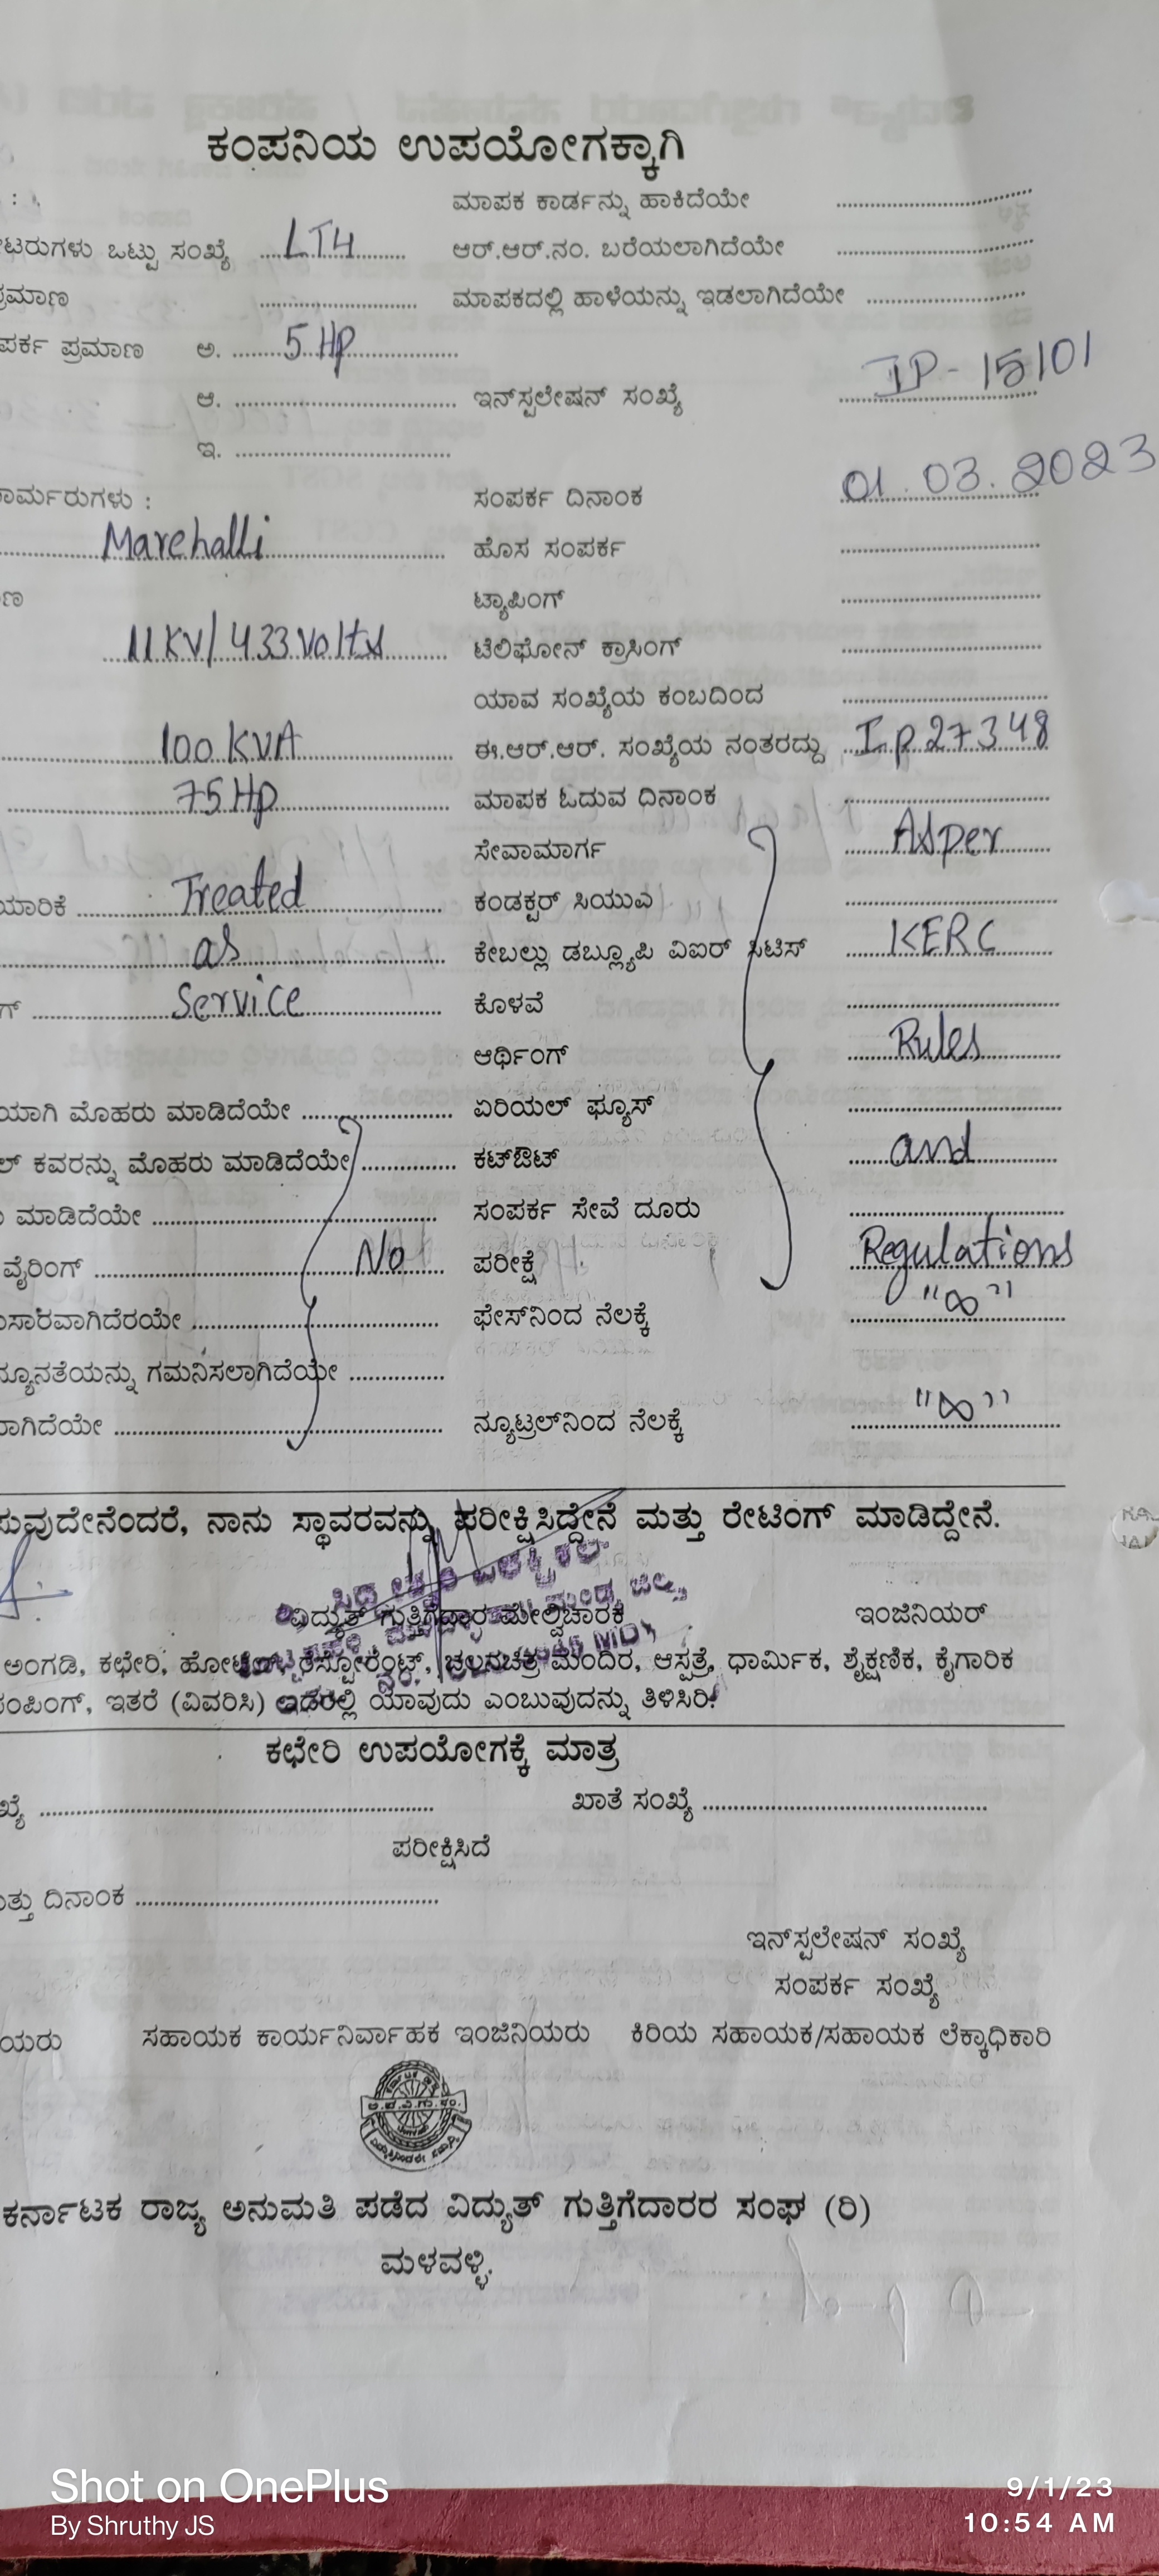 ಕಂಪನಿಯ ಉಪಯೋಗಕ್ಕಾಗಿ
ಮಾಪಕ ಕಾರ್ಡನ್ನು ಹಾಕಿದೆಯೇ
ಟರುಗಳು ಒಟ್ಟು ಸಂಖ್ಯೆ LT4 ಆರ್.ಆರ್.ನಂ. ಬರೆಯಲಾಗಿದೆಯೇ
ಪ್ರಮಾಣ ಮಾಪಕದಲ್ಲಿ ಹಾಳೆಯನ್ನು ಇಡಲಾಗಿದೆಯೇ
ಪರ್ಕ ಪ್ರಮಾಣ ಅ. 5 Hp
ಆ. ಇನ್‌ಸ್ಪಲೇಷನ್ ಸಂಖ್ಯೆ IP-15101
ಇ.
ಾರ್ಮರುಗಳು : ಸಂಪರ್ಕ ದಿನಾಂಕ 01.03.2023
Marehalli ಹೊಸ ಸಂಪರ್ಕ
ಣ ಟ್ಯಾಪಿಂಗ್
11 KV/433 Volts ಟೆಲಿಫೋನ್ ಕ್ರಾಸಿಂಗ್
ಯಾವ ಸಂಖ್ಯೆಯ ಕಂಬದಿಂದ
100 KVA ಈ.ಆರ್.ಆರ್. ಸಂಖ್ಯೆಯ ನಂತರದ್ದು Ip 27348
75 Hp ಮಾಪಕ ಓದುವ ದಿನಾಂಕ
ಸೇವಾಮಾರ್ಗ As per
ಯಾರಿಕೆ Treated ಕಂಡಕ್ಟರ್ ಸಿಯುಎ
as ಕೇಬಲ್ಲು ಡಬ್ಲ್ಯೂಪಿ ವಿಐರ್ ಸಿಟಿಸ್ KERC
ಗ್ Service ಕೊಳವೆ
ಆರ್ಥಿಂಗ್ Rules
ಯಾಗಿ ಮೊಹರು ಮಾಡಿದೆಯೇ ಏರಿಯಲ್ ಫ್ಯೂಸ್
ಲ್ ಕವರನ್ನು ಮೊಹರು ಮಾಡಿದೆಯೇ ಕಟ್‌ಔಟ್ and
ು ಮಾಡಿದೆಯೇ ಸಂಪರ್ಕ ಸೇವೆ ದೂರು
ವೈರಿಂಗ್ No ಪರೀಕ್ಷೆ Regulations
ುಸಾರವಾಗಿದೆರಯೇ ಫೇಸ್‌ನಿಂದ ನೆಲಕ್ಕೆ "∞"
ನ್ಯೂನತೆಯನ್ನು ಗಮನಿಸಲಾಗಿದೆಯೇ
ರಾಗಿದೆಯೇ ನ್ಯೂಟ್ರಲ್‌ನಿಂದ ನೆಲಕ್ಕೆ "∞"
ಸುವುದೇನೆಂದರೆ, ನಾನು ಸ್ಥಾವರವನ್ನು ಪರೀಕ್ಷಿಸಿದ್ದೇನೆ ಮತ್ತು ರೇಟಿಂಗ್ ಮಾಡಿದ್ದೇನೆ.
ವಿದ್ಯುತ್ ಗುತ್ತಿಗೆದಾರ ಮೇಲ್ವಿಚಾರಕ ಇಂಜಿನಿಯರ್
ಅಂಗಡಿ, ಕಛೇರಿ, ಹೋಟೆಲ್, ರೆಸ್ಟೋರೆಂಟ್, ಚಲನಚಿತ್ರ ಮಂದಿರ, ಆಸ್ಪತ್ರೆ, ಧಾರ್ಮಿಕ, ಶೈಕ್ಷಣಿಕ, ಕೈಗಾರಿಕ
ಂಪಿಂಗ್, ಇತರೆ (ವಿವರಿಸಿ) ಇದರಲ್ಲಿ ಯಾವುದು ಎಂಬುವುದನ್ನು ತಿಳಿಸಿರಿ.
ಕಛೇರಿ ಉಪಯೋಗಕ್ಕೆ ಮಾತ್ರ
ಖ್ಯೆ ಖಾತೆ ಸಂಖ್ಯೆ
ಪರೀಕ್ಷಿಸಿದೆ
ತ್ತು ದಿನಾಂಕ
ಇನ್‌ಸ್ಪಲೇಷನ್ ಸಂಖ್ಯೆ
ಸಂಪರ್ಕ ಸಂಖ್ಯೆ
ಯರು ಸಹಾಯಕ ಕಾರ್ಯನಿರ್ವಾಹಕ ಇಂಜಿನಿಯರು ಕಿರಿಯ ಸಹಾಯಕ/ಸಹಾಯಕ ಲೆಕ್ಕಾಧಿಕಾರಿ
ಕರ್ನಾಟಕ ರಾಜ್ಯ ಅನುಮತಿ ಪಡೆದ ವಿದ್ಯುತ್ ಗುತ್ತಿಗೆದಾರರ ಸಂಘ (ರಿ)
ಮಳವಳ್ಳಿ.
Shot on OnePlus
By Shruthy JS
9/1/23
10:54 AM